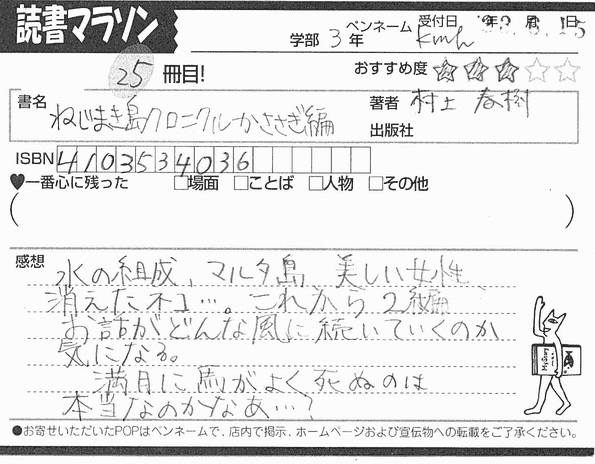 読書マラソン
学部 3年 ペンネーム kmh 受付日 年 月 日
25 冊目! おすすめ度 ★★★☆☆
書名 ねじまき島クロニクルかささぎ編
著者 村上 春樹
出版社
ISBN 4103534036
♥一番心に残った □場面 □ことば □人物 □その他
( )
感想 水の組成、マルタ島、美しい女性
消えたネコ…。これから2編
お話がどんな風に続いていくのか
気になる。
満月に馬がよく死ぬのは
本当なのかなあ…?
Mystery
●お寄せいただいたPOPはペンネームで、店内で掲示、ホームページおよび宣伝物への転載をご了承ください。